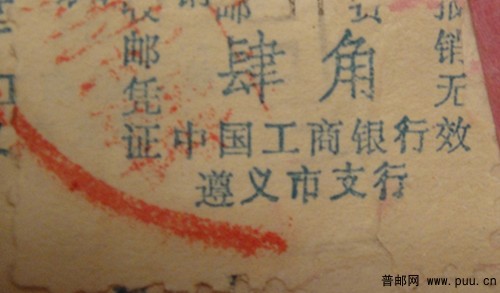 邮
肆角
邮凭证
报销无效
中国工商银行
遵义市支行
普邮网 www.puu.cn